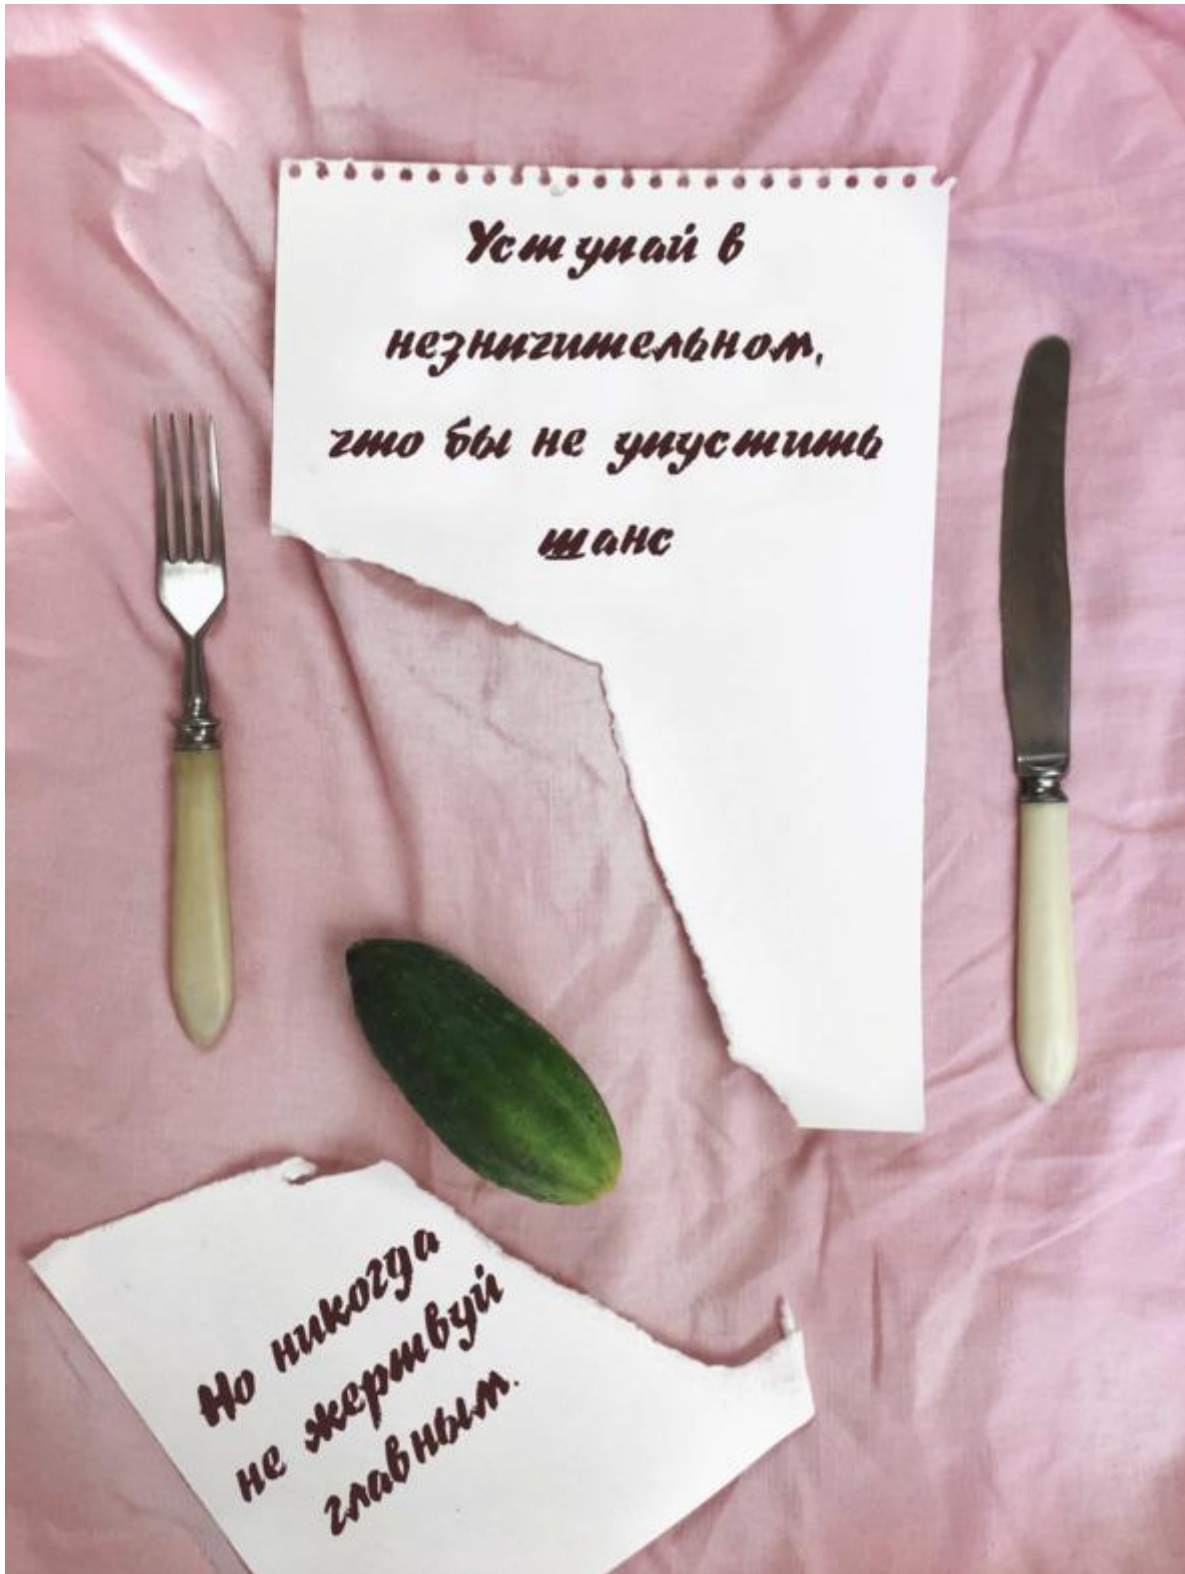 Уступай в
незничительном,
что бы не упустить
шанс
Но никогда
не жертвуй
главным.